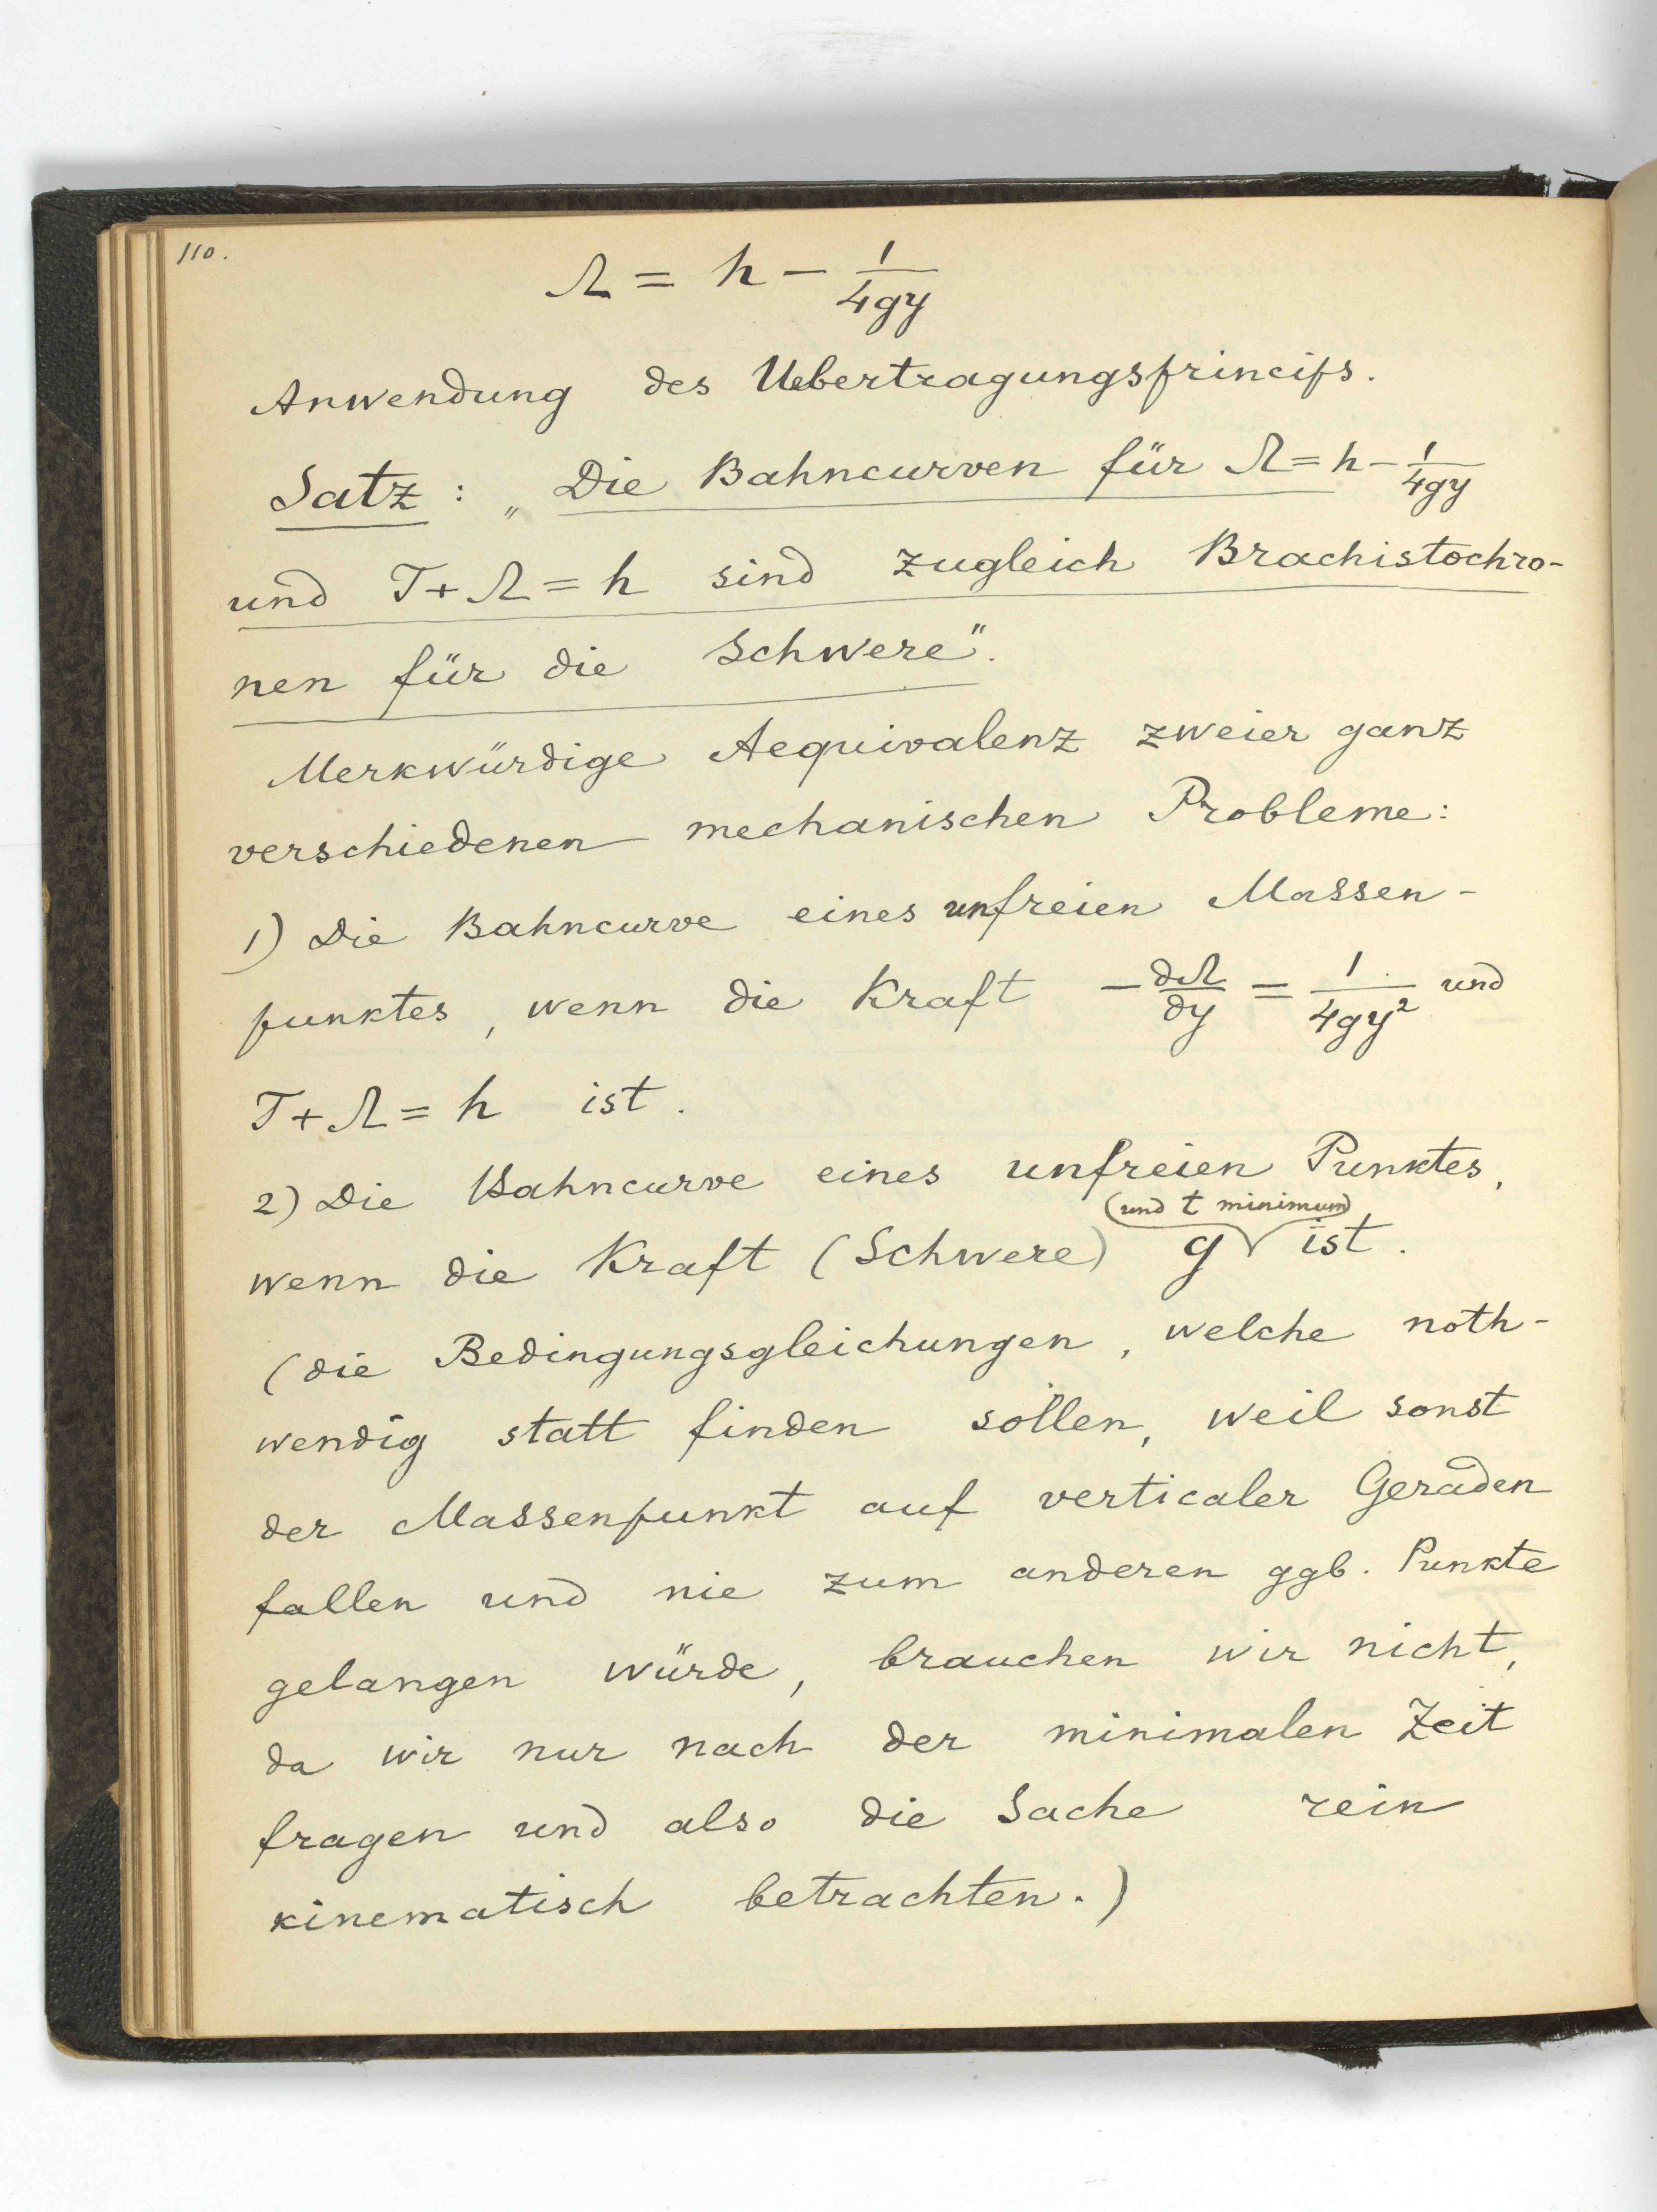 110.
Ω = h - 1/4gy
Anwendung des Uebertragungsprincips.
Satz : „Die Bahncurven für Ω = h - 1/4gy
und T + Ω = h sind zugleich Brachistochro-
nen für die Schwere".
Merkwürdige Aequivalenz zweier ganz
verschiedenen mechanischen Probleme:
1) Die Bahncurve eines unfreien Massen-
punktes, wenn die Kraft - ∂Ω/∂y = 1/4gy² und
T + Ω = h ist.
2) Die Bahncurve eines unfreien Punktes,
(und t minimum)
wenn die Kraft (Schwere) g ist.
(die Bedingungsgleichungen, welche noth-
wendig statt finden sollen, weil sonst
der Massenpunkt auf verticaler Geraden
fallen und nie zum anderen ggb. Punkte
gelangen würde, brauchen wir nicht,
da wir nur nach der minimalen Zeit
fragen und also die Sache rein
kinematisch betrachten.)